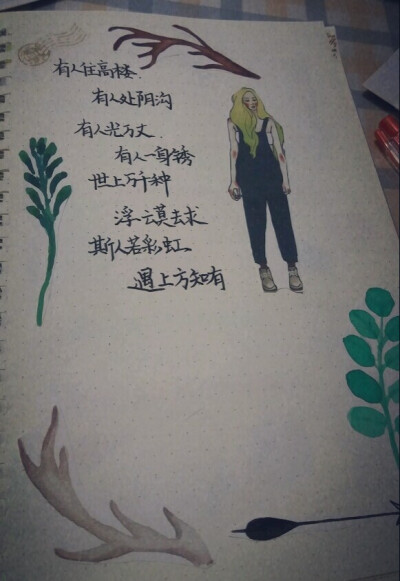 有人住高楼
有人处阴沟
有人光万丈
有人一身锈
世上万千种
浮云莫去求
斯人若彩虹
遇上方知有